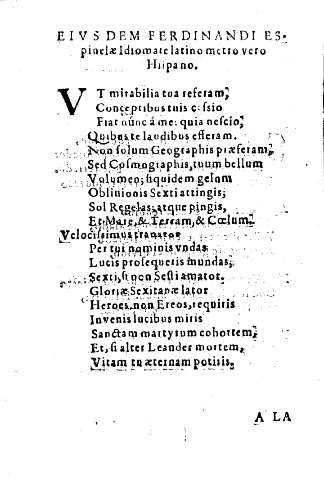 EIVSDEM FERDINANDI ES-
pinelæ Idiomate latino metro vero
Hispano.
VT mirabilia tua referam,
Conceptibus tuis cessio
Fiat nunc á me: quia nescio,
Quibus te laudibus efferam.
Non solum Geographis præferam,
Sed Cosmographis, tuum bellum
Volumen; siquidem gelum
Oblivionis Sexti attingis;
Sol Regelas, atque pingis,
Et Mare, & Terram, & Cœlum.
Velocissimus
Per tui nominis vndas
Lucis prosequeris mundas,
Sexti, si non Sesti amator.
Gloriæ Sexitanæ lator
Heroes, non Ereos, requiris
Invenis lucibus miris
Sanctam martyrum cohortem,
Et, si alter Leander mortem,
Vitam tu æternam potiris.
A LA